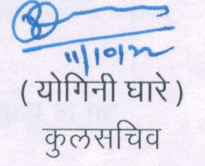 11/10/22
( योगिनी घारे )
कुलसचिव